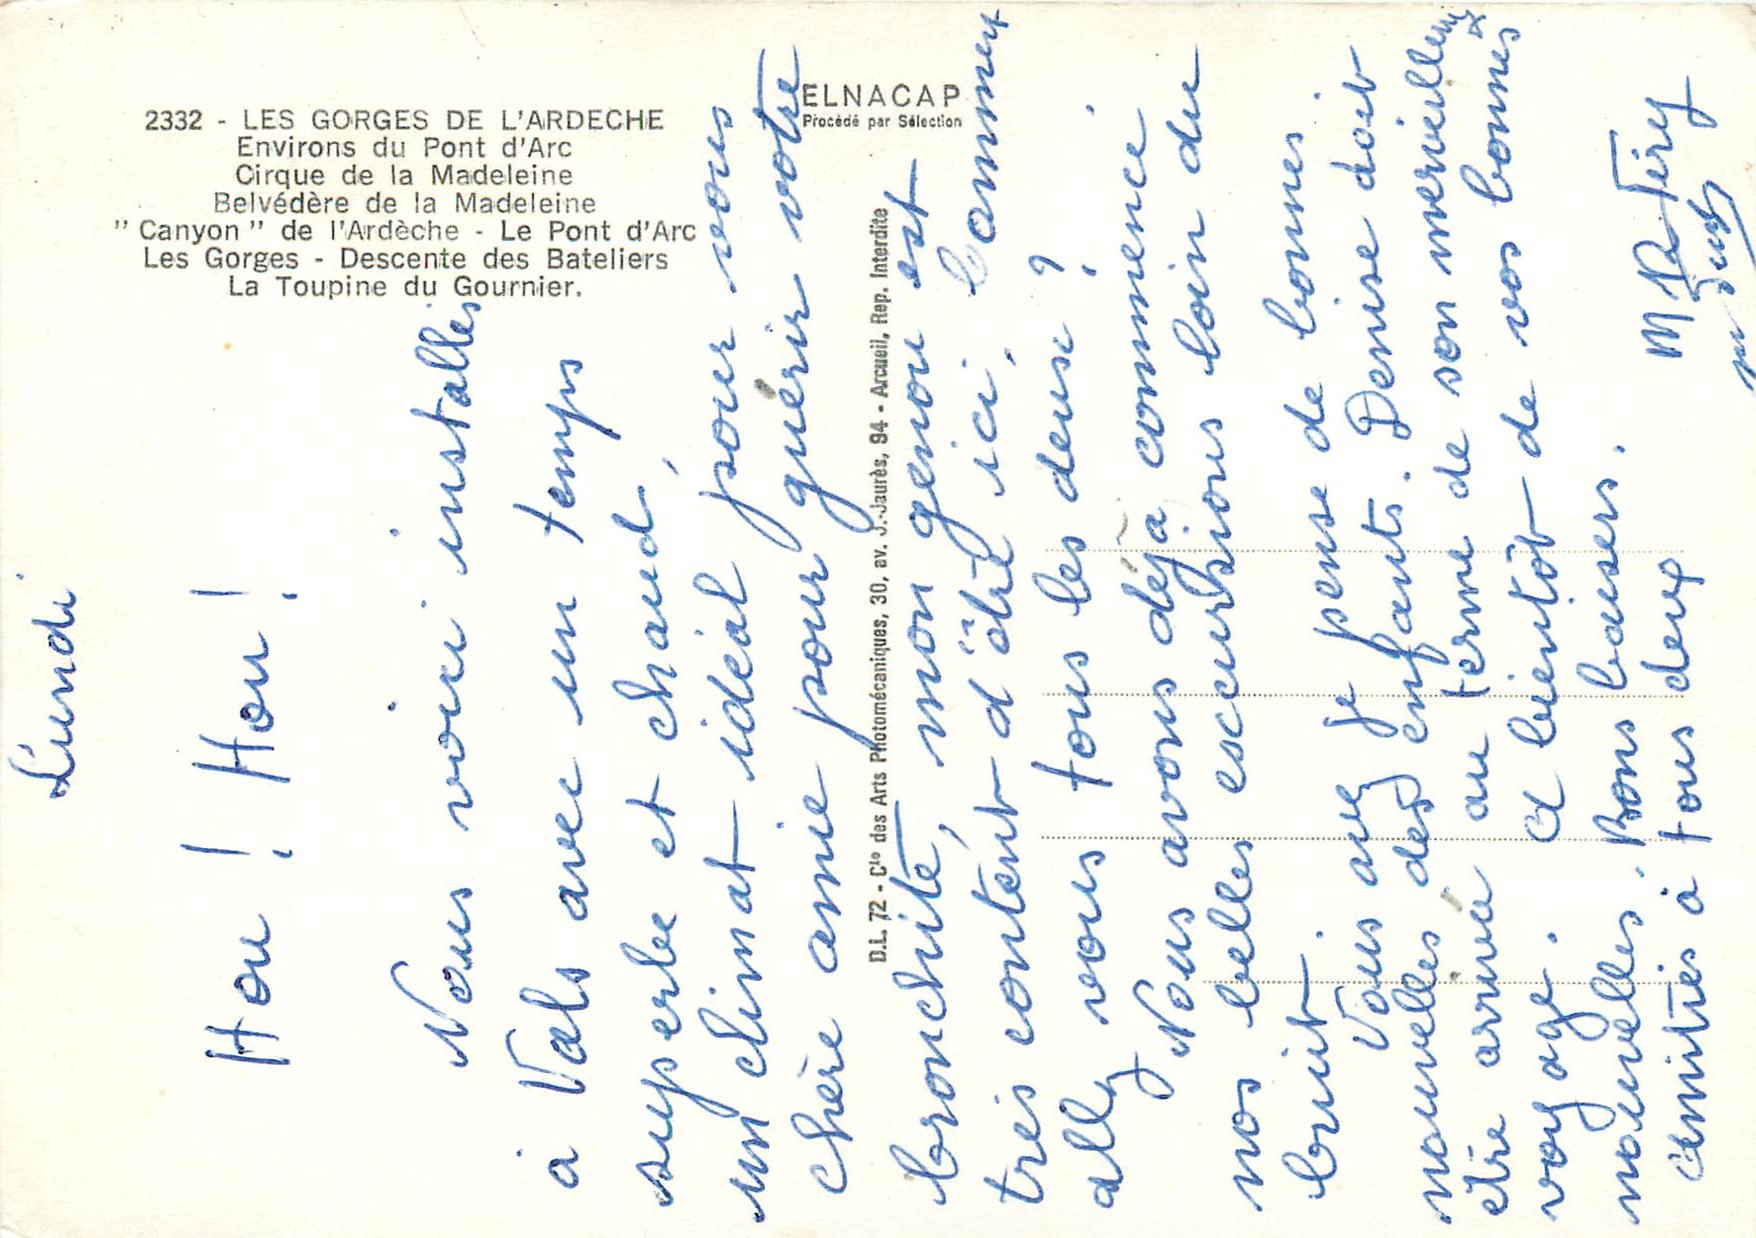 2332 - LES GORGES DE L'ARDECHE
Environs du Pont d'Arc
Cirque de la Madeleine
Belvédère de la Madeleine
" Canyon " de l'Ardèche - Le Pont d'Arc
Les Gorges - Descente des Bateliers
La Toupine du Gournier.
ELNACAP
Procédé par Sélection
D.L. 72 - Cie des Arts Photomécaniques, 30, av. J.-Jaurès, 94 - Arcueil, Rep. Interdite
Lundi
Hou ! Hou !
Nous voici installés
à Vals avec un temps
superbe et chaud,
un climat idéal pour vous
chère amie pour guérir votre
bronchite, mon genou est
très content d'être ici. Comment
allez vous tous les deux ?
Nous avons déjà commencé
nos belles excursions loin du
bruit.
Vous avez je pense de bonnes
nouvelles des enfants. Denise doit
être arrivée au terme de son merveilleux
voyage. A bientôt de vos bonnes
nouvelles. Bons baisers.
amitiés à tous deux